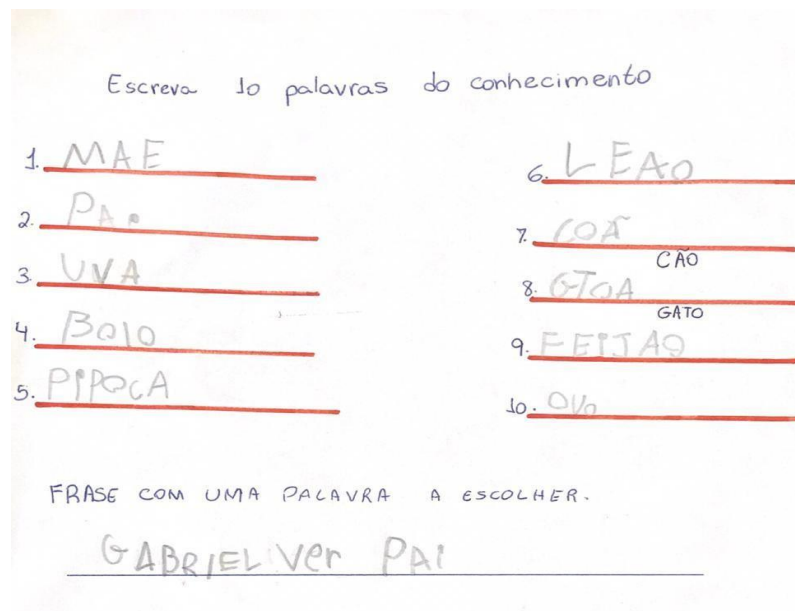 Escreva 10 palavras do conhecimento
1. MAE
2. PAI
3. UVA
4. BOlO
5. PIPOCA
6. LEAO
7. COÃ
CÃO
8. GTOA
GATO
9. FEIJAO
10. OVo
FRASE COM UMA PALAVRA A ESCOLHER.
GABRIEL Ver PAI